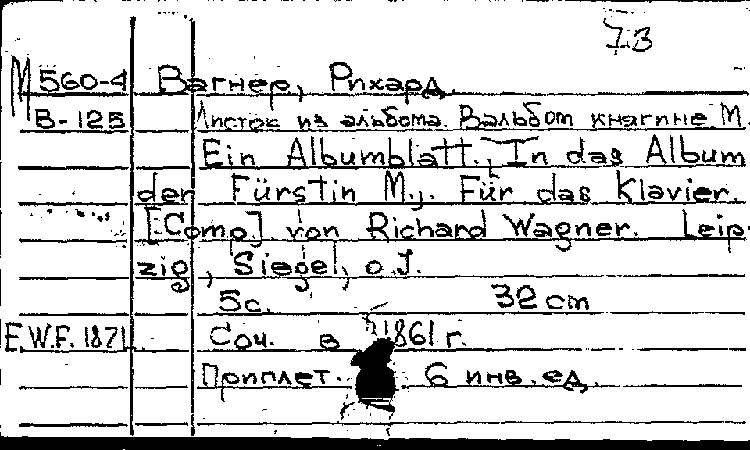 73
М 560-4 Вагнер, Рихард.
В-125 Листок из альбома. В альбом княгине М.
Ein Albumblatt. In das Album
der Fürstin M.,. Für das Klavier.
[Comp] von Richard Wagner. Leip-
zig, Siegel, o.J.
5с. 32 cm
E.W.F. 1871. Соч. в 1861 г.
Приплет. 6 инв. ед.